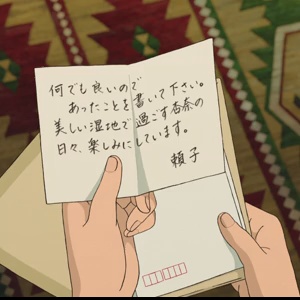 何でも良いので
あったことを書いて下さい。
美しい湿地で過ごす杏奈の
日々、楽しみにしています。
頼子